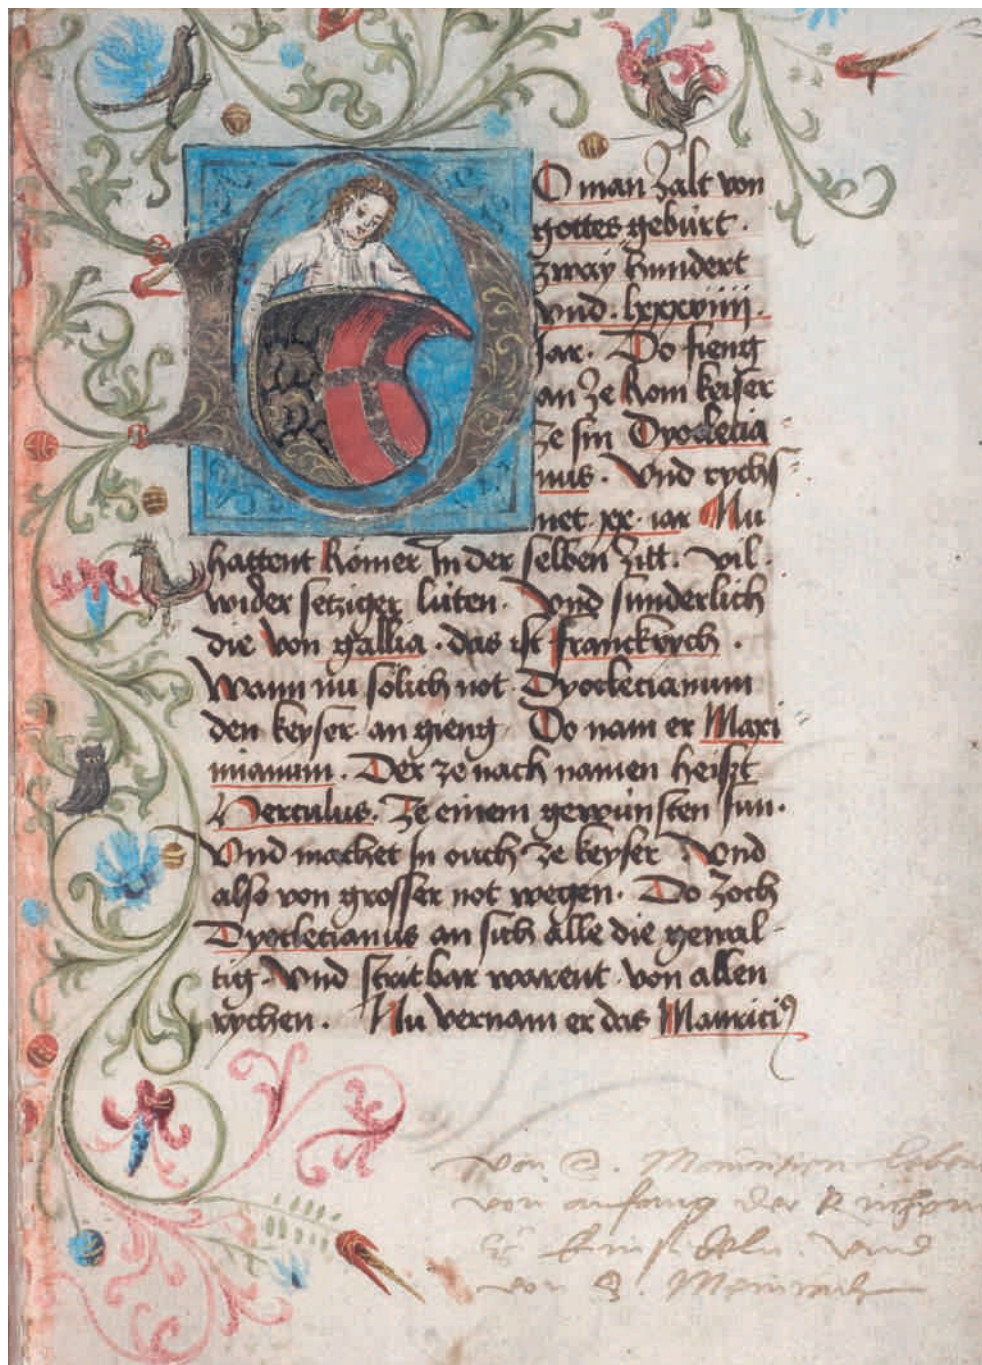 O man zalt von
gottes gebürt ·
zway hundert
vnd · lxxxviiij ·
Jar · Do fieng
an ze Rom keiser
ze sin Dyoclecia
nus · Vnd rychs
net · xx · iar Nu
hattent Römer In der selben zitt · vil ·
wider setziger lüten · vnd sunderlich
die von gallia · das ist franckrych ·
Wann nu sölich not Dyoclecianum
den keyser an gieng Do nam er Maxi
mianum · Der zo nach namen heisst
Herculus · Ze einem gewünsten sun ·
Vnd machet in ouch ze keyser · vnd
also von grosser not wegen · Do zoch
Dyoclecianus an sich alle die gewal-
tig · vnd stritbar warent von allen
rychen · Nu vernam er das Mauriciꝰ
von S. Mauritzen leben
von anfang der
Einsideln vnd
von S. Meinrad